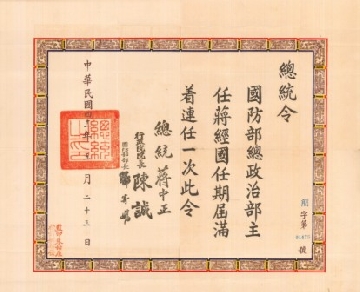 總統令
國防部總政治部主
任蔣經國任期屆滿
着連任一次此令
總統 蔣中正
行政院院長 陳誠
國防部部長
中華民國 年 月二十三日
字第 號